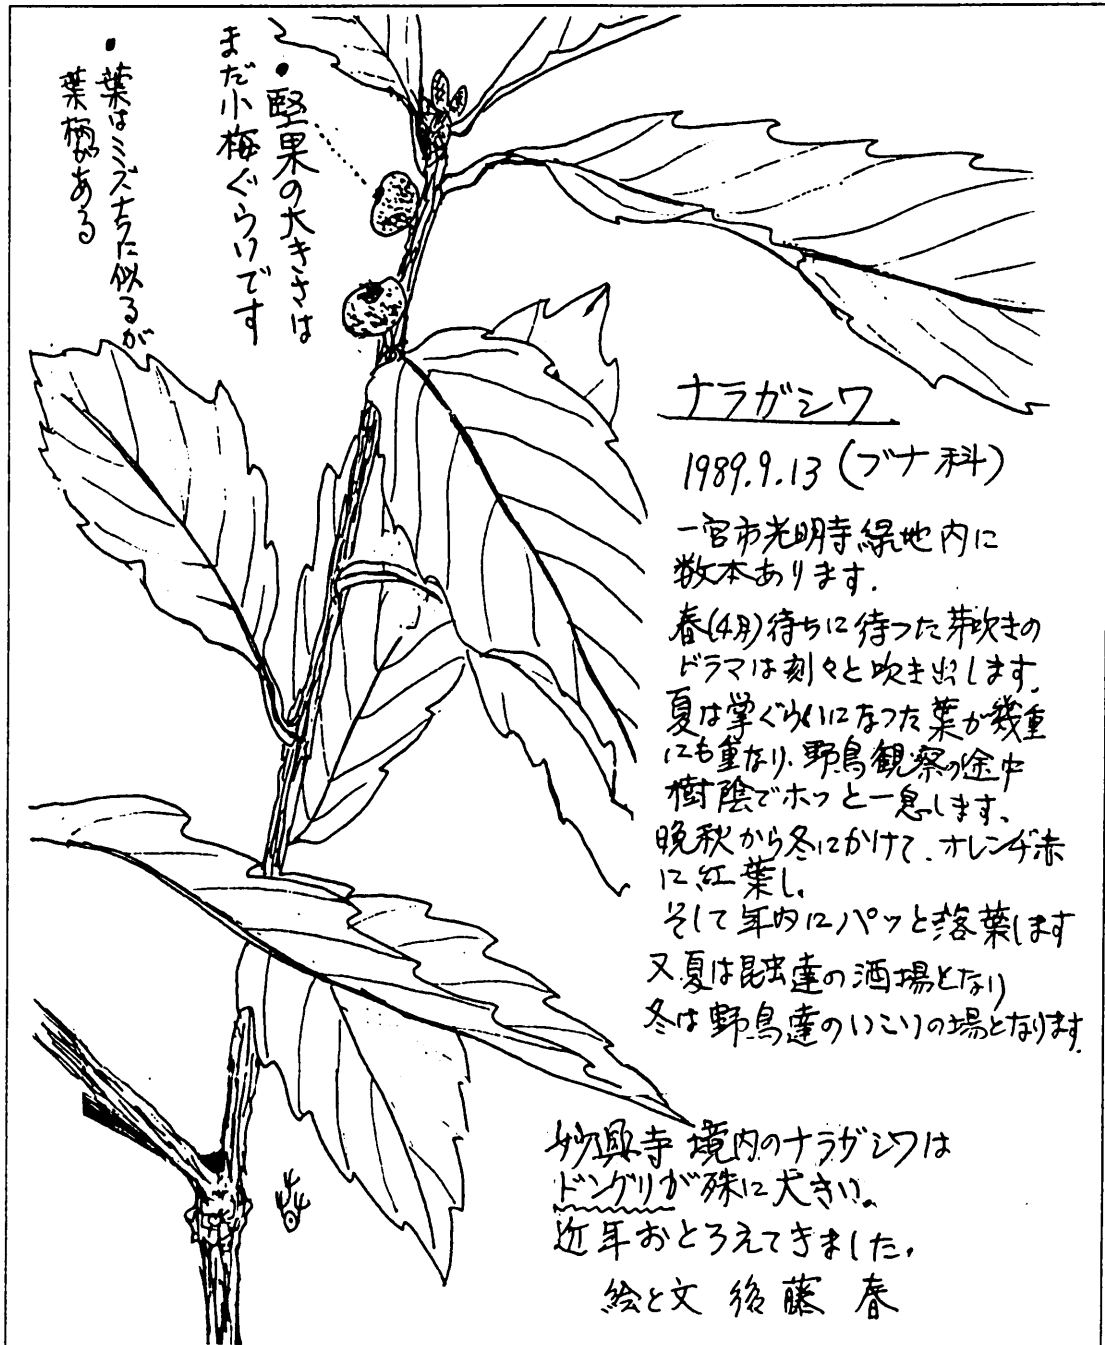 ・堅果の大きさは
まだ小梅ぐらいです
・葉はミズナラに似るが
葉柄がある
ナラガシワ
1989.9.13 (ブナ科)
一宮市光明寺緑地内に
数本あります.
春(4月)待ちに待った芽吹きの
ドラマは刻々と吹き出します.
夏は掌ぐらいになった葉が幾重
にも重なり、野鳥観察の途中
樹陰でホッと一息します.
晩秋から冬にかけて、オレンヂ赤
に紅葉し、
そして年内にパッと落葉します
又夏は昆虫達の酒場となり
冬は野鳥達のいこいの場となります.
妙興寺境内のナラガシワは
ドングリが殊に大きい。
近年おとろえてきました.
絵と文 後藤 春